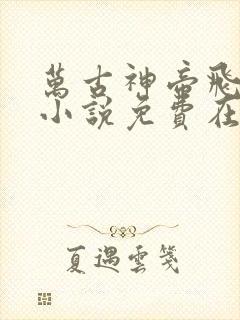 萬古神帝飛
小說免費在
夏遇雲箋